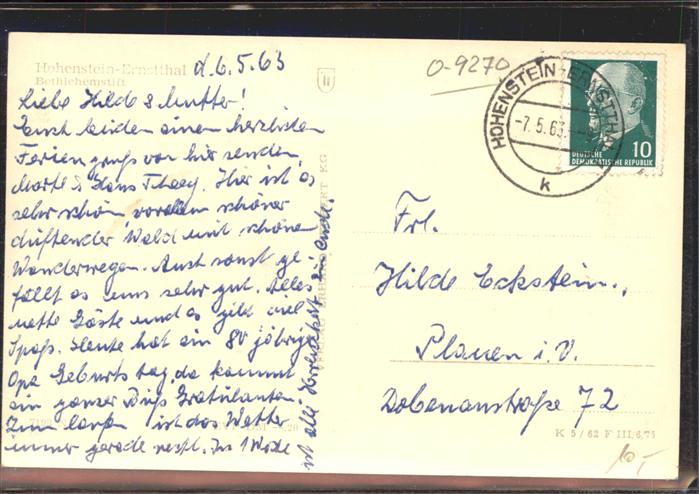 Hohenstein-Ernstthal
Bethlehemstift
d. 6.5.63
Liebe Hilde & Mutter!
Euch beiden einen herzlichsten
Feriengruß von hier senden
Marte & Hans. Hier ist es
sehr schön, vor allem schöner
duftender Wald mit schönen
Wanderwegen. Auch sonst ge-
fällt es uns sehr gut. Alles
nette Gäste und es gibt viel
Spaß. Heute hat ein 80 jähriger
Opa Geburtstag, da kommt
ein ganzer Gratulanten.
ist das Wetter
immer gerade nicht. In 1 Woche
ist alle Herrlichkeit zu Ende.
O-9270
HOHENSTEIN-ERNSTTHAL
-7.5.63.
k
10
DEUTSCHE
DEMOKRATISCHE REPUBLIK
Frl.
Hilde Eckstein,
Plauen i. V.
Dobenaustraße 72
K 5/62 F III/6/75
10,-